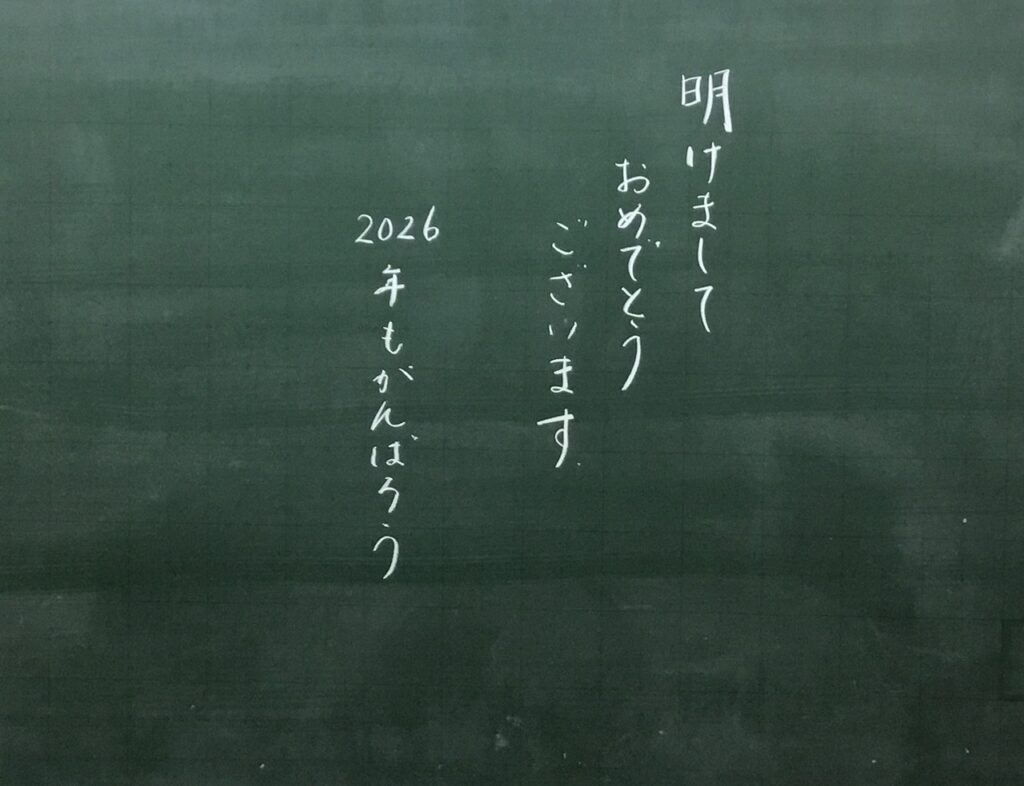 明けまして
おめでとう
ございます
2026
年もがんばろう